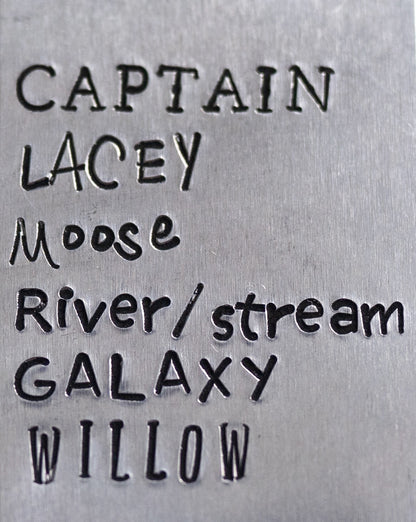 CAPTAIN
LACEY
Moose
River/stream
GALAXY
WILLOW